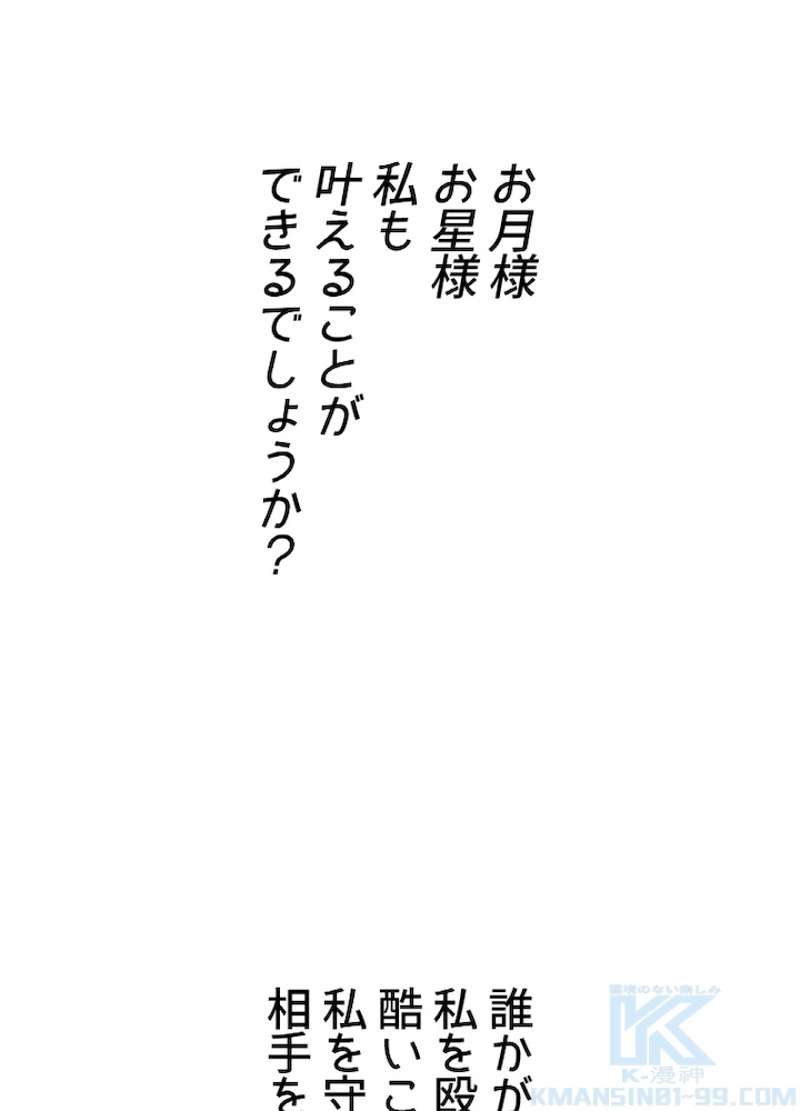 お月様
お星様
私も
叶えることが
できるでしょうか?
誰かが
私を殴
酷いこ
私を守
相手を
K-漫神
KMANSIN01-99.COM